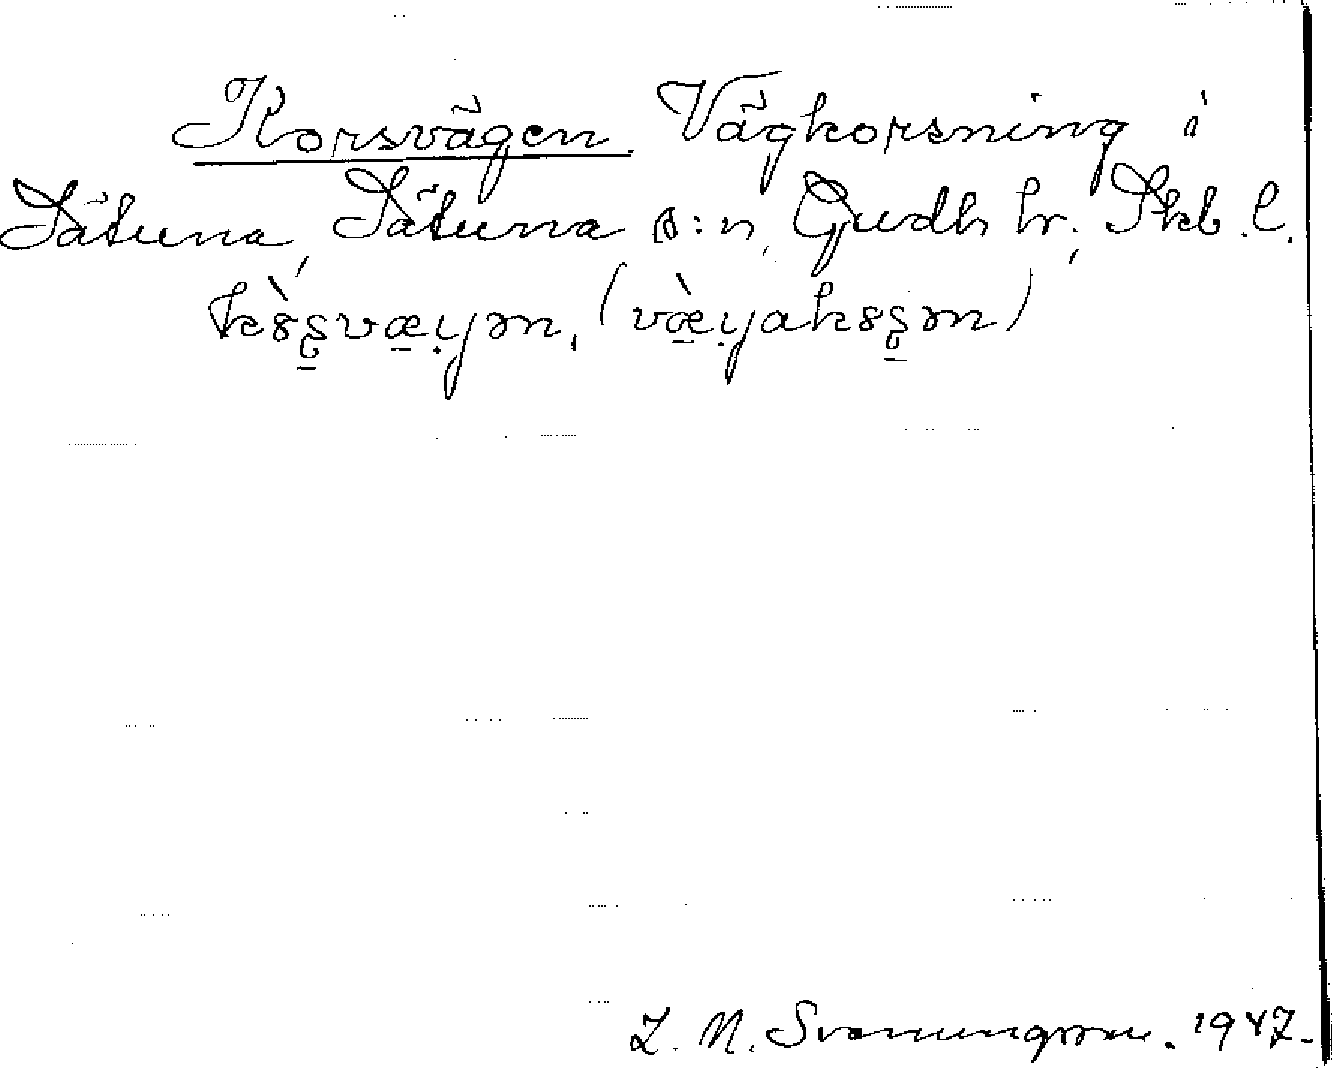 Korsvägen. Vägkorsning i
Sätuna, Sätuna s:n, Gudh hr., Skb. l.
kȣ̀s̱væ̱yən, (væ̱̀yakȣs̱ən)
L. N. Svanungsson. 1947.